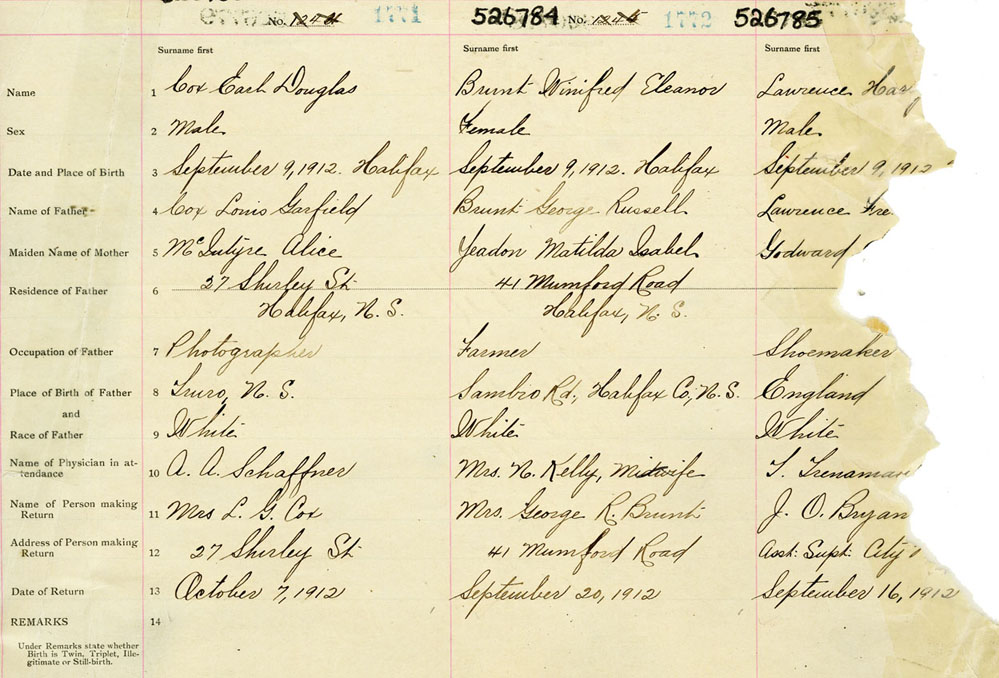 No. 1244 1771 526784 No. 1245 1772 526785
Surname first Surname first Surname first
Name 1 Cox Earl Douglas Brunt Winifred Eleanor Lawrence
Sex 2 Male Female Male
Date and Place of Birth 3 September 9, 1912. Halifax September 9, 1912. Halifax September 9, 1912
Name of Father 4 Cox Louis Garfield Brunt George Russell Lawrence Fre
Maiden Name of Mother 5 McIntyre Alice Yeadon Matilda Isabel Godward
27 Shirley St. 41 Mumford Road
Residence of Father 6
Halifax, N. S. Halifax, N. S.
Occupation of Father 7 Photographer Farmer Shoemaker
Place of Birth of Father 8 Truro, N. S. Sambro Rd., Halifax Co., N. S. England
and
Race of Father 9 White White White
Name of Physician in at-
tendance 10 A. A. Schaffner Mrs. N. Kelly, Midwife T. Trenaman
Name of Person making
Return 11 Mrs L. G. Cox Mrs. George R. Brunt J. O. Bryan
Address of Person making
Return 12 27 Shirley St. 41 Mumford Road Asst. Supt. City
Date of Return 13 October 7, 1912 September 20, 1912 September 16, 1912
REMARKS 14
Under Remarks state whether
Birth is Twin, Triplet, Ille-
gitimate or Still-birth.